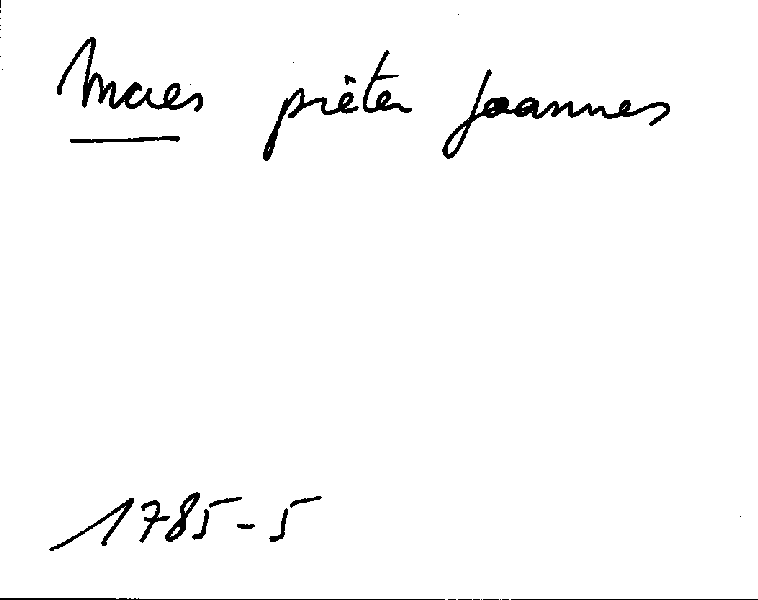 Maes piêter Joannes
1785-5